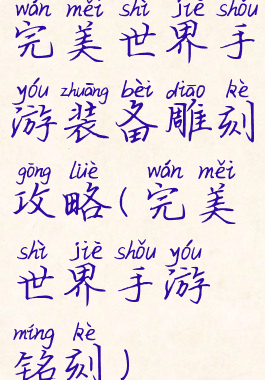 wán měi shì jiè shǒu
完美世界手
yóu zhuāng bèi diāo kè
游装备雕刻
gōng lüè wán měi
攻略(完美
shì jiè shǒu yóu
世界手游
míng kè
铭刻)